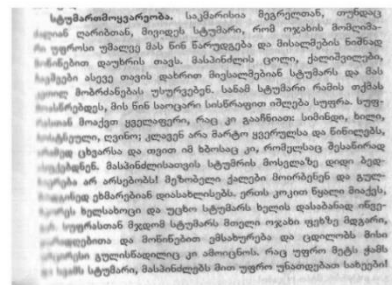 სტუმართმოყვარეობა. საკმარისია მეგრელთან, თუნდაც
ღარიბთან, მივიდეს სტუმარი, რომ ოჯახის მომღიმა-
უფროსი უმალვე მას წინ წარუდგება და მისალმების ნიშნად
მოწიწებით დაუხრის თავს. მასპინძლის ცოლი, ქალიშვილები,
ასევე თავის დახრით მიესალმებიან სტუმარს და მას
მობრძანებას უსურვებენ. სანამ სტუმარი რამის თქმას
მის წინ საოცარი სისწრაფით იშლება სუფრა. სუფ-
მოაქვთ ყველაფერი, რაც კი გააჩნიათ: სიმინდი, ხილი,
ღვინო; კლავენ არა მარტო ყვერულსა და წიწილებს,
ცხვარსა და თვით იმ ხბოსაც კი, რომელსაც შესაწირად
მასპინძლისათვის სტუმრის მოსვლაზე დიდი ბედ-
არ არსებობს! მეზობელი ქალები მოირბენენ და გულ-
ეხმარებიან დიასახლისებს. ერთს კოკით წყალი მიაქვს,
ხელსახოცი და უცხო სტუმარს ხელის დასაბანად იწვე-
სუფრასთან მჯდომ სტუმარს მთელი ოჯახი ფეხზე მდგარი,
და მოწიწებით ემსახურება და ცდილობს მისი
გულისწადილიც კი ამოიცნოს. რაც უფრო მეტს ჭამს
სტუმარი, მასპინძლებს მით უფრო უნათდებათ სახეები!